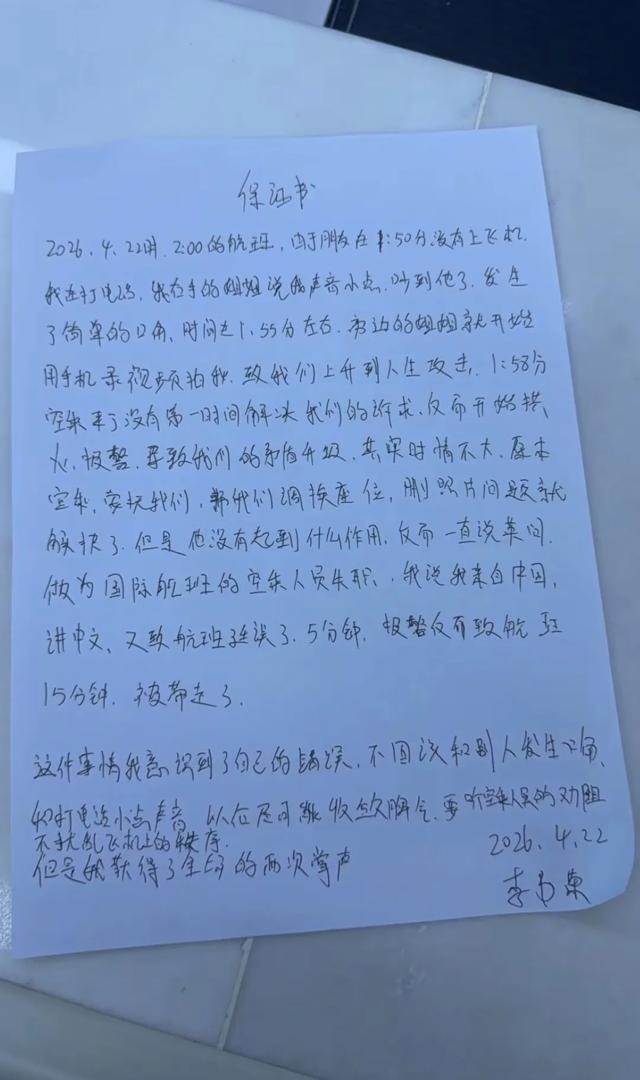 保证书
2026.4.22日. 2:00的航班, 由于朋友在1:50分没有上飞机.
我在打电话, 我右手的姐姐说我声音小点, 吵到他了. 发生
了简单的口角, 时间在1.55分左右. 旁边的姐姐就开始
用手机录视频拍我. 致我们上升到人生攻击. 1:58分
空乘来了没有第一时间解决我们的诉求, 反而开始拱
火. 报警. 导致我们的矛盾升级. 其实时情不大, 原本
空乘, 安抚我们, 帮我们调换座位, 删照片问题就
解决了. 但是他没有起到什么作用, 反而一直说英问.
做为国际航班的空乘人员失职., 我说我来自中国,
讲中文, 又致航班延误了. 5分钟, 报警仅有致航班
15分钟. 被带走了.
这件事情我意识到了自己的错误, 不因该和别人发生口角,
和打电话小点声音. 以后尽可能收敛脾气, 要听空乘人员的劝阻
不扰乱飞机上的秩序.
但是我获得了全场的两次掌声
2026.4.22
李